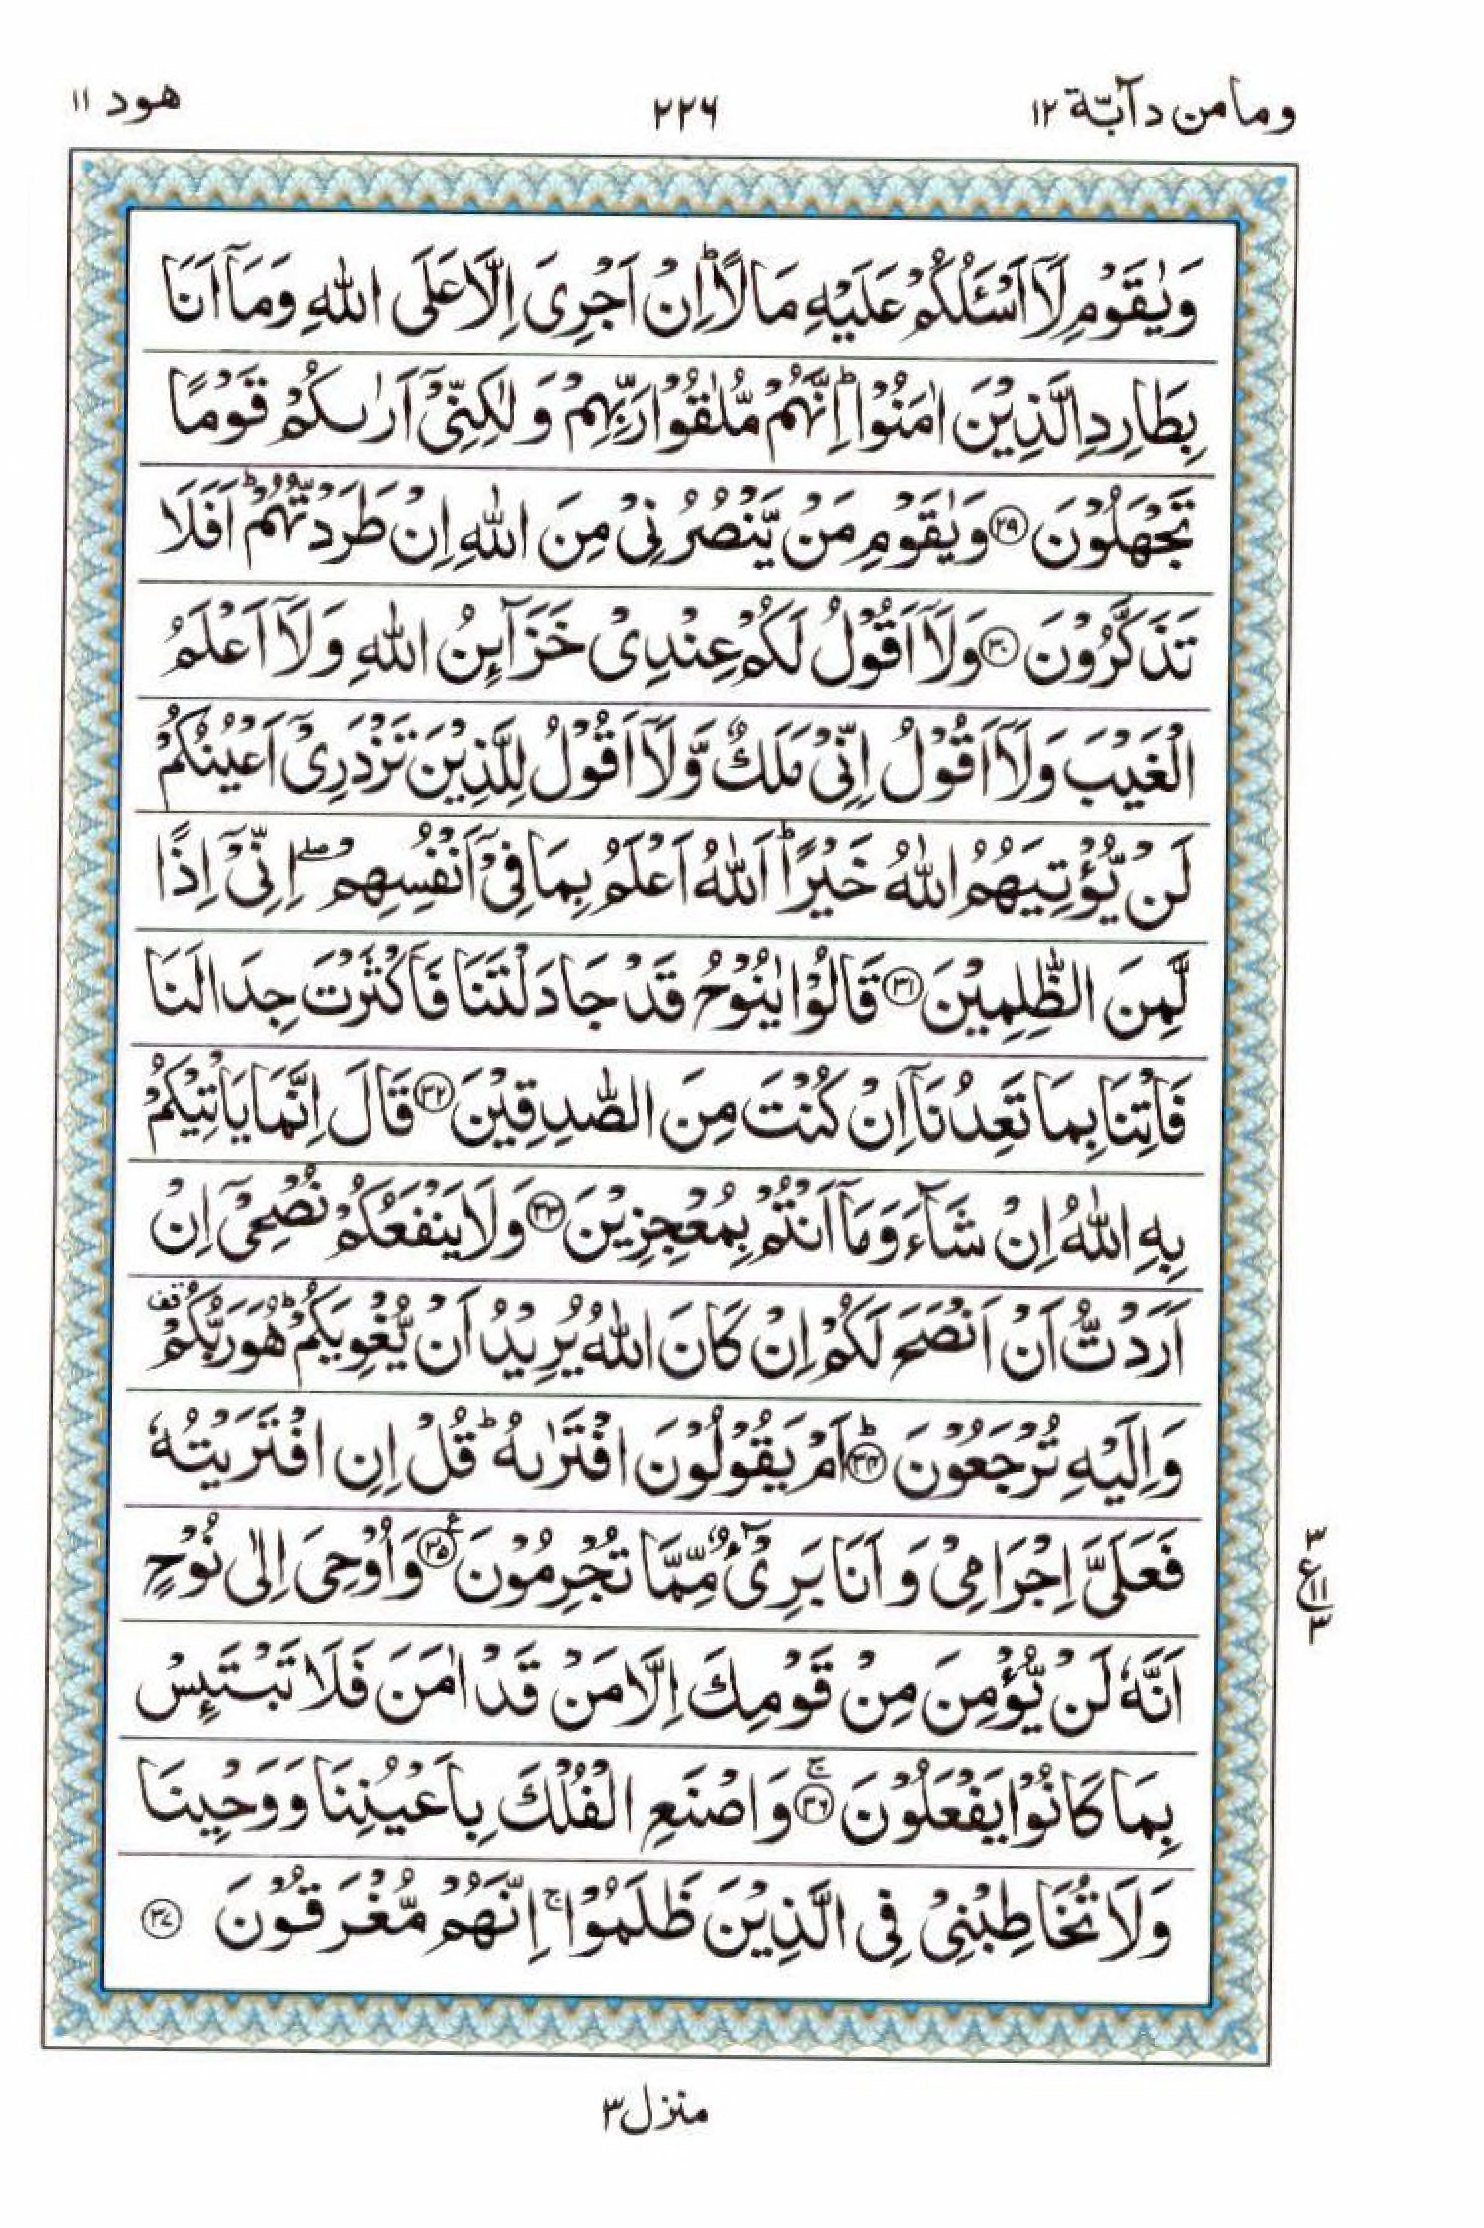 وما من دآبّة ١٢
٢٢٦
هود ١١
وَيٰقَوْمِ لَآ اَسْـَٔلُكُمْ عَلَيْهِ مَالًا ؕ اِنْ اَجْرِىَ اِلَّا عَلَى اللّٰهِ وَمَآ اَنَا
بِطَارِدِ الَّذِيْنَ اٰمَنُوْا ؕ اِنَّهُمْ مُّلٰقُوْا رَبِّهِمْ وَلٰكِنِّىْٓ اَرٰىكُمْ قَوْمًا
تَجْهَلُوْنَ ﴿۲۹﴾ وَيٰقَوْمِ مَنْ يَّنْصُرُنِىْ مِنَ اللّٰهِ اِنْ طَرَدْتُّهُمْ ؕ اَفَلَا
تَذَكَّرُوْنَ ﴿۳۰﴾ وَلَآ اَقُوْلُ لَكُمْ عِنْدِىْ خَزَآئِنُ اللّٰهِ وَلَآ اَعْلَمُ
الْغَيْبَ وَلَآ اَقُوْلُ اِنِّىْ مَلَكٌ وَّلَآ اَقُوْلُ لِلَّذِيْنَ تَزْدَرِىْٓ اَعْيُنُكُمْ
لَنْ يُّؤْتِيَهُمُ اللّٰهُ خَيْرًا ؕ اَللّٰهُ اَعْلَمُ بِمَا فِىْٓ اَنْفُسِهِمْ ۖ اِنِّىْٓ اِذًا
لَّمِنَ الظّٰلِمِيْنَ ﴿۳۱﴾ قَالُوْا يٰنُوْحُ قَدْ جَادَلْتَنَا فَاَكْثَرْتَ جِدَالَنَا
فَاْتِنَا بِمَا تَعِدُنَآ اِنْ كُنْتَ مِنَ الصّٰدِقِيْنَ ﴿۳۲﴾ قَالَ اِنَّمَا يَاْتِيْكُمْ
بِهِ اللّٰهُ اِنْ شَآءَ وَمَآ اَنْتُمْ بِمُعْجِزِيْنَ ﴿۳۳﴾ وَلَا يَنْفَعُكُمْ نُصْحِىْٓ اِنْ
اَرَدْتُّ اَنْ اَنْصَحَ لَكُمْ اِنْ كَانَ اللّٰهُ يُرِيْدُ اَنْ يُّغْوِيَكُمْ ؕ هُوَ رَبُّكُمْ قف
وَاِلَيْهِ تُرْجَعُوْنَ ؕ ﴿۳۴﴾ اَمْ يَقُوْلُوْنَ افْتَرٰىهُ ؕ قُلْ اِنِ افْتَرَيْتُهٗ
فَعَلَىَّ اِجْرَامِىْ وَاَنَا بَرِىْٓءٌ مِّمَّا تُجْرِمُوْنَ ع ﴿۳۵﴾ وَاُوْحِىَ اِلٰى نُوْحٍ
٣ ع ١١ ٣
اَنَّهٗ لَنْ يُّؤْمِنَ مِنْ قَوْمِكَ اِلَّا مَنْ قَدْ اٰمَنَ فَلَا تَبْتَئِسْ
بِمَا كَانُوْا يَفْعَلُوْنَ ۚ ﴿۳۶﴾ وَاصْنَعِ الْفُلْكَ بِاَعْيُنِنَا وَوَحْيِنَا
وَلَا تُخَاطِبْنِىْ فِى الَّذِيْنَ ظَلَمُوْا ۚ اِنَّهُمْ مُّغْرَقُوْنَ ﴿۳۷﴾
منزل ٣